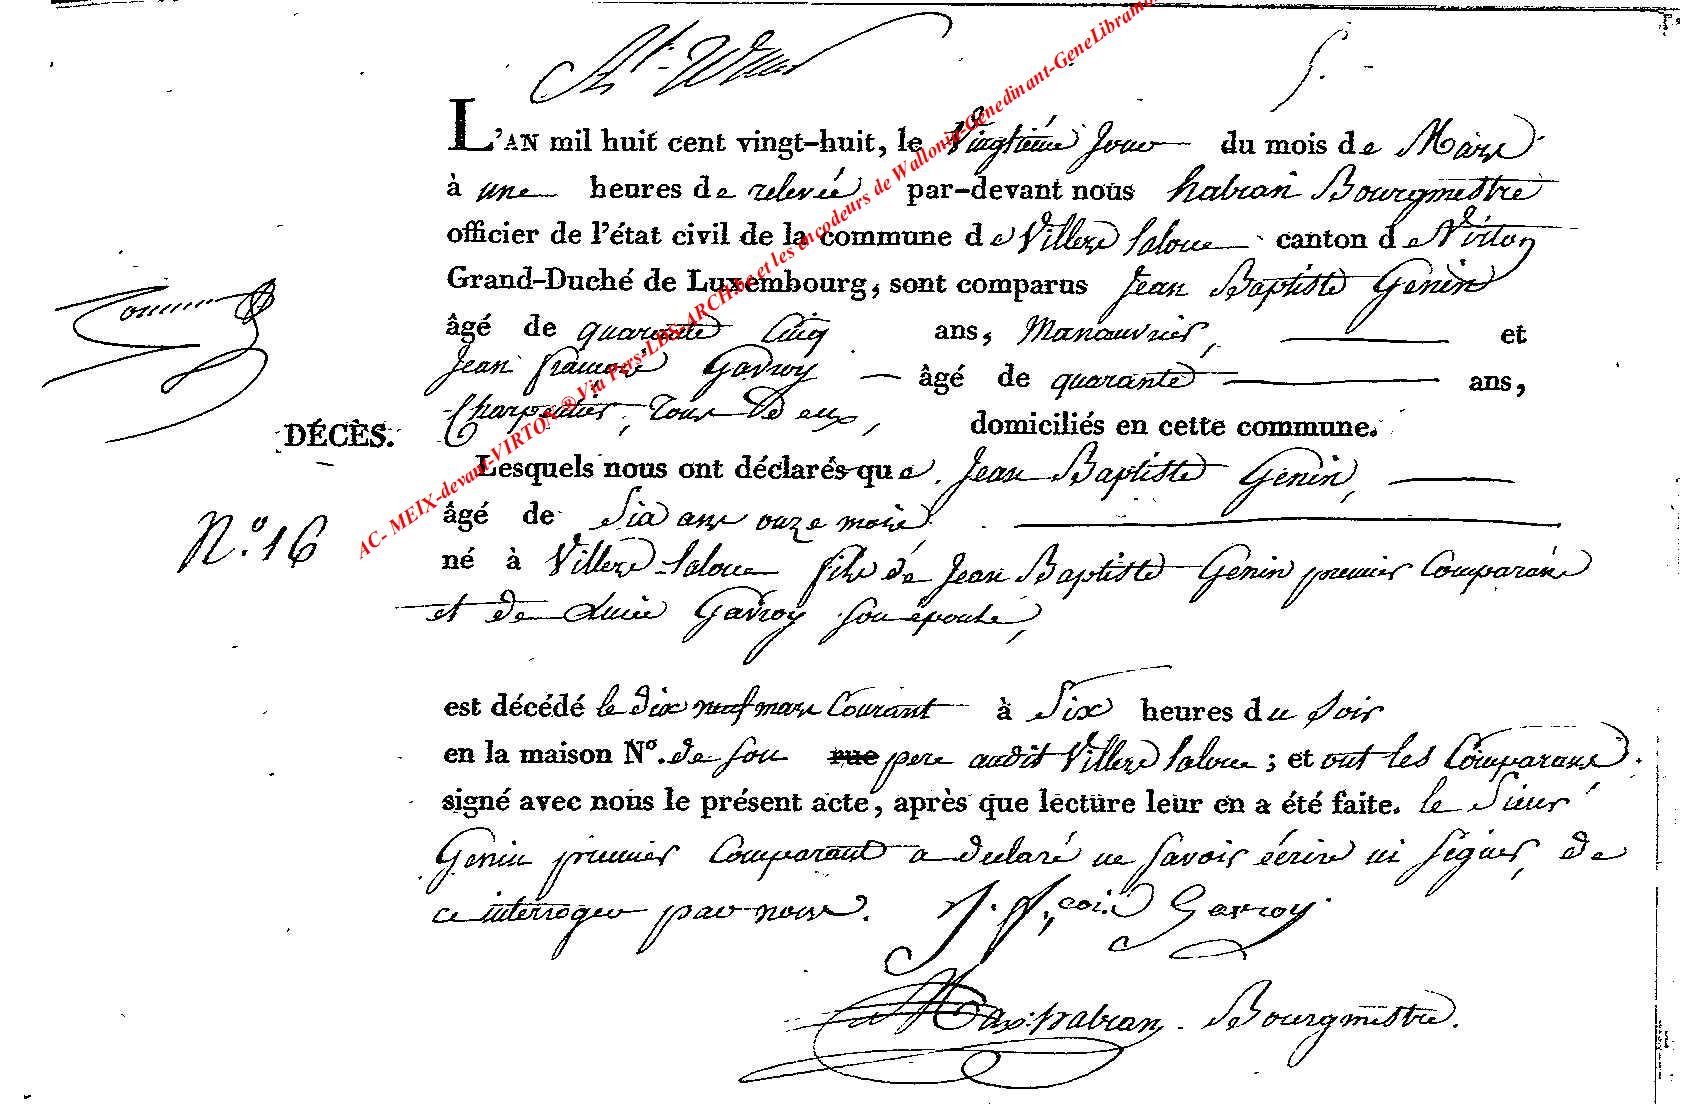 L'AN mil huit cent vingt-huit, le Vingtième Jour du mois de Mars
à une heures de relevée par-devant nous habran Bourgmestre
officier de l'état civil de la commune de Villers Laloue canton de Virton
Grand-Duché de Luxembourg, sont comparus Jean Baptiste Genin
âgé de quarante Cinq ans, Manœuvrier, et
Jean françois Gavroy âgé de quarante ans,
Charpentier, Tous Deux, domiciliés en cette commune.
DÉCÈS.
Lesquels nous ont déclarés que Jean Baptiste Genin,
N.o 16
âgé de Six ans onze mois,
né à Villers-Laloue fils de Jean Baptiste Genin premier Comparant
et de Lucie Gavroy son épouse,
est décédé le dix neuf mars Courant à Six heures du Soir
en la maison No. de son rue pere audit Villers Laloue ; et ont les Comparans
signé avec nous le présent acte, après que lecture leur en a été faite. le Sieur
Genin premier Comparant a declaré ne savoir écrire ni signer, de
ce interroger par nous. J. fçois Gavroy
habran Bourgmestre.
AC- MEIX-devant-VIRTON ® Via Pers-LDS-ARCH.be et les encodeurs de Wallonie-Genedinant-GeneLibramo